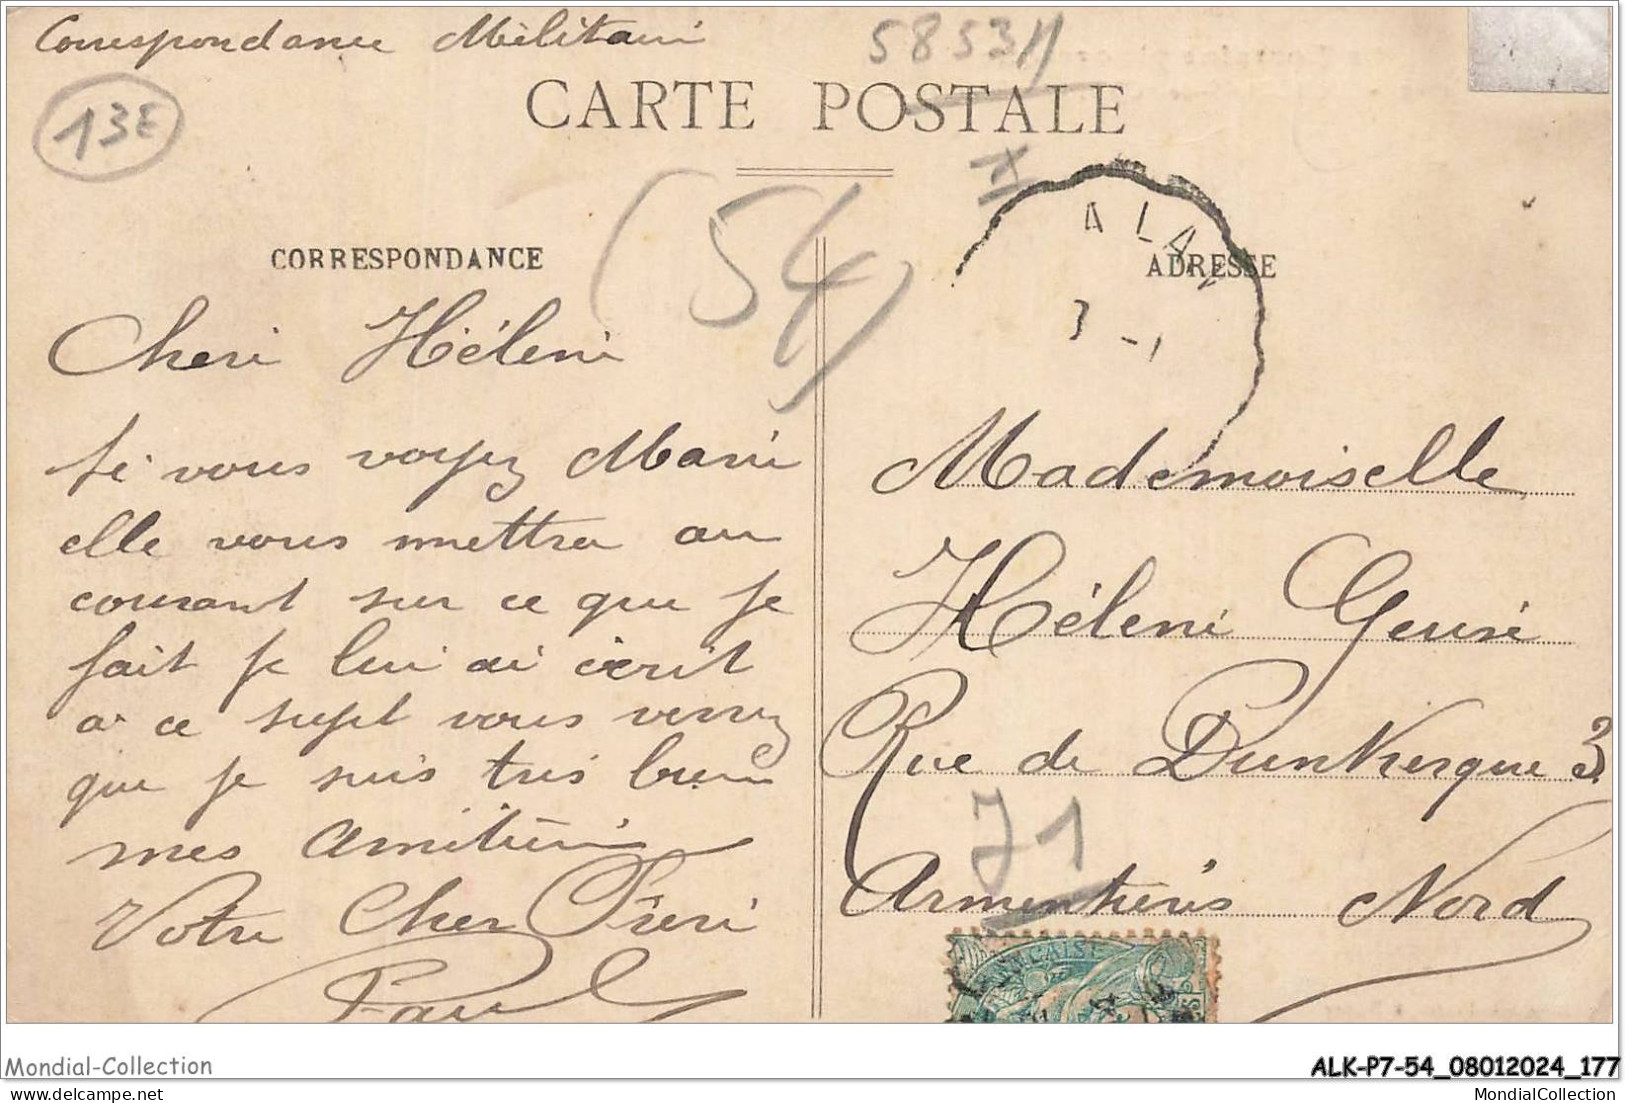 Correspondance Militaire
58531
13E
CARTE POSTALE
(54)
CORRESPONDANCE
ADRESSE
ALA
3 -1
Cheri Hélène
Si vous voyez Marie
elle vous mettra au
courant sur ce que je
fait je lui ai écrit
a ce sujet vous verrez
que je suis très bien
mes Amitiés
Votre Cher Frère
Paul
Mademoiselle
Hélène
Rue de Dunkerque 3
71
Armentières Nord
Mondial-Collection
ALK-P7-54_08012024_177
MondialCollection